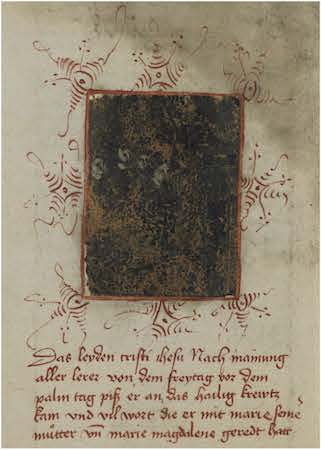 Das leyden cristi ihesu Nach mainung
aller lerer von dem freytag vor dem
palm tag piß er an das hailig krewtz
kam vnd vil wort die er mit marie seine
můtter vñ marie magdalene geredt hatt